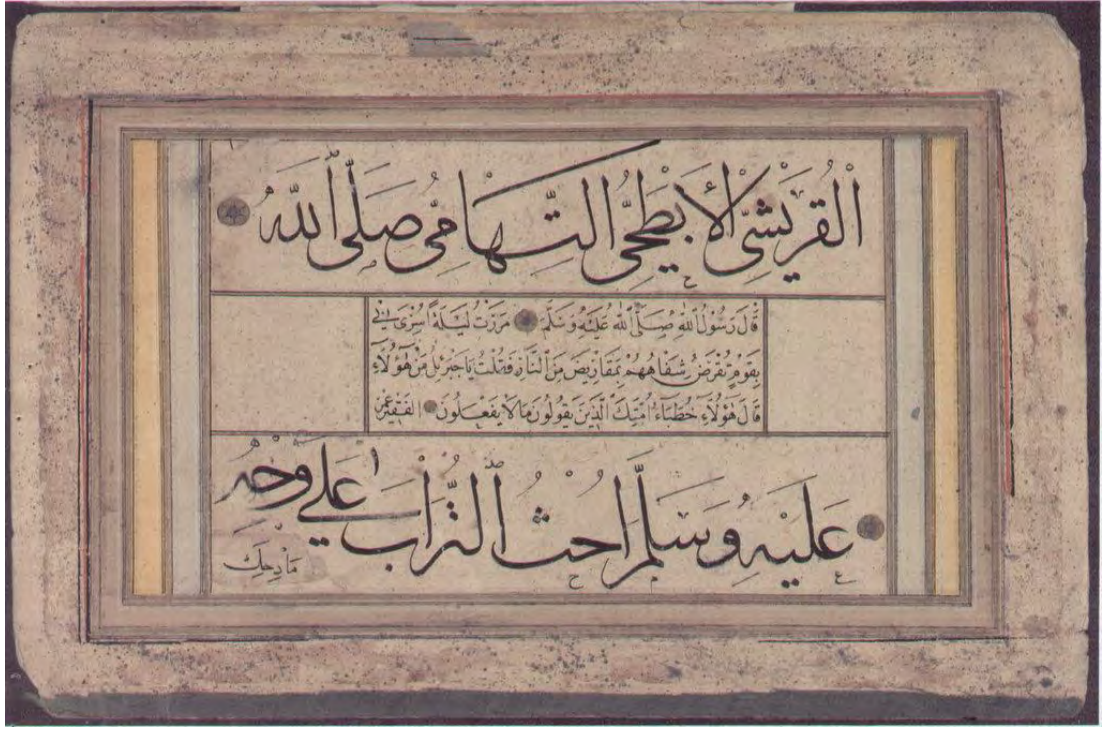 الْقُرَيْشِيِّ الْأَبْطَحِيِّ التِّهَامِيِّ صَلَّى اللَّهُ
قَالَ رَسُولُ اللهِ صَلَّى اللهُ عَلَيْهِ وَسَلَّمَ مَرَرْتُ لَيْلَةَ أُسْرِيَ بِي
بِقَوْمٍ تُقْرَضُ شِفَاهُهُمْ بِمَقَارِيضَ مِنَ النَّارِ فَقُلْتُ يَا جَبْرَئِيلُ مَنْ هَؤُلَاءِ
قَالَ هَؤُلَاءِ خُطَبَاءُ أُمَّتِكَ الَّذِينَ يَقُولُونَ مَا لَا يَفْعَلُونَ الفقير
عَلَيْهِ وَسَلَّمَ احْثُ التُّرَابَ عَلَى وَجْهِ
مَادِحِكَ